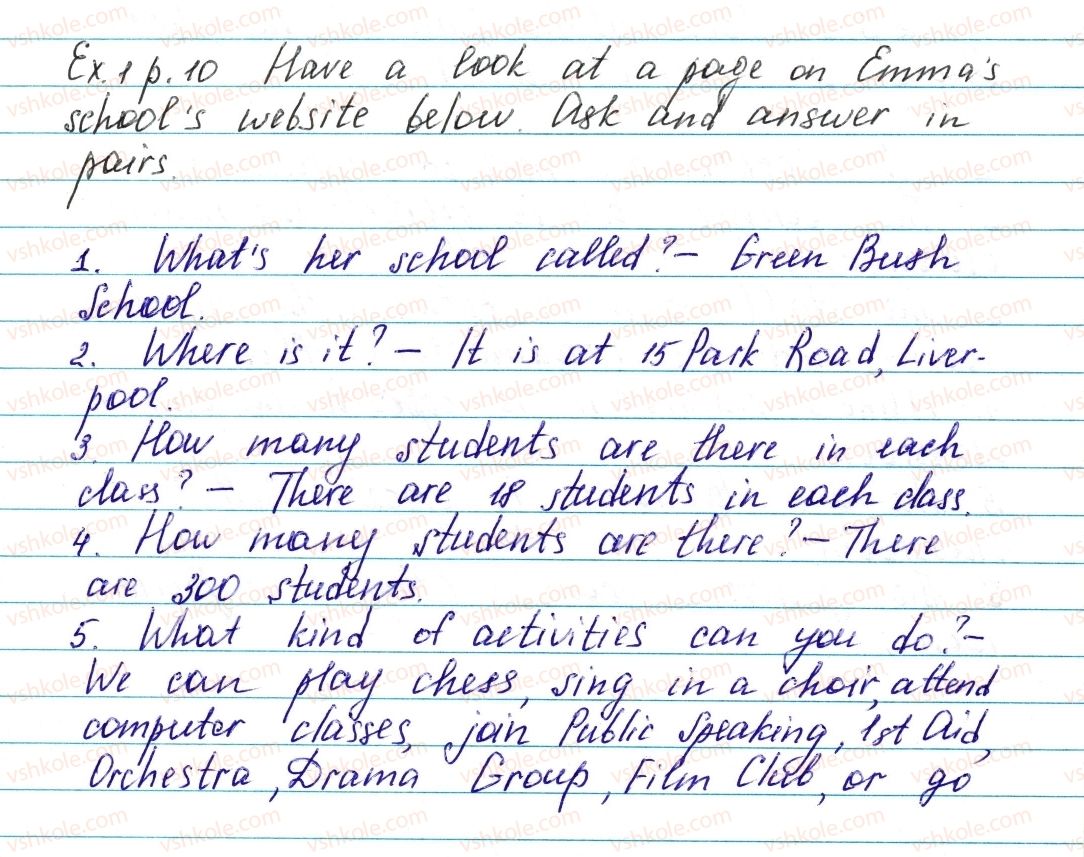 Ex.1 p.10 Have a look at a page on Emma's
school's website below. Ask and answer in
pairs.
1. What's her school called? – Green Bush
School.
2. Where is it? – It is at 15 Park Road, Liver-
pool.
3. How many students are there in each
class? – There are 18 students in each class.
4. How many students are there? – There
are 300 students.
5. What kind of activities can you do? –
We can play chess, sing in a choir, attend
computer classes, join Public Speaking, 1st Aid,
Orchestra, Drama Group, Film Club, or go